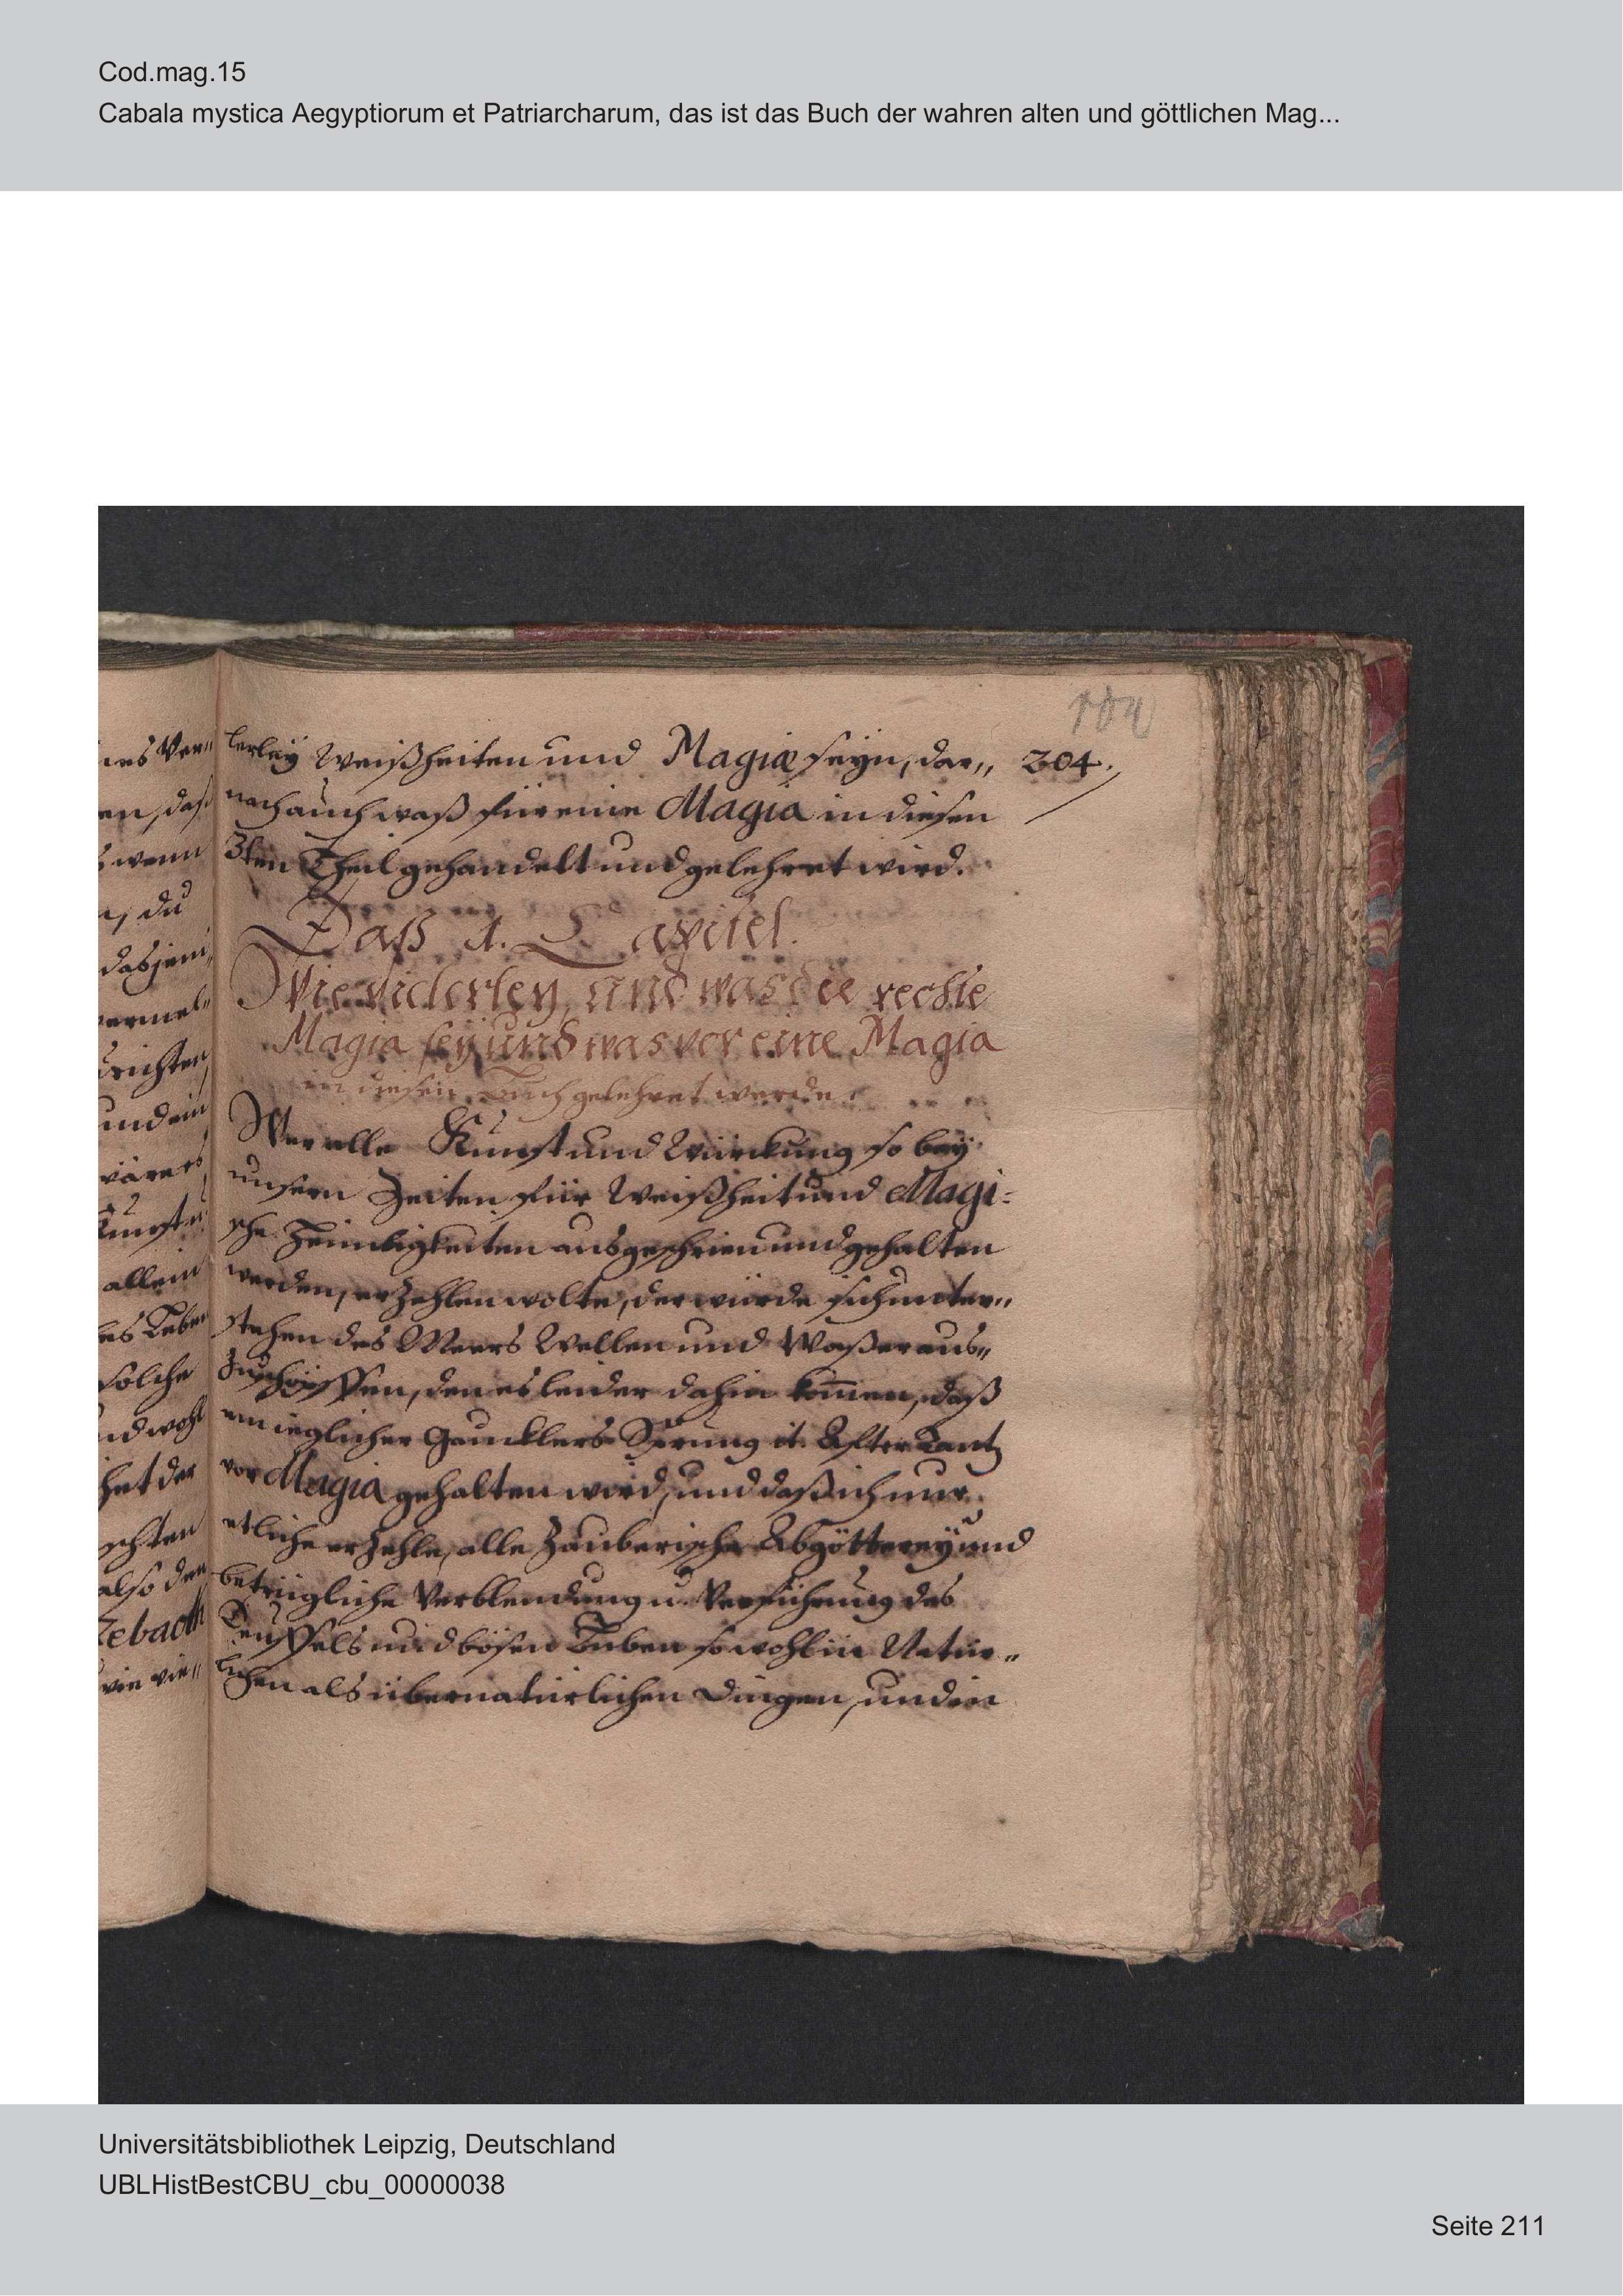 Cod.mag.15
Cabala mystica Aegyptiorum et Patriarcharum, das ist das Buch der wahren alten und göttlichen Mag...
104
204.
lerley Weißheiten und Magiæ seyn, dar„
nach auch waß für eine Magia in diesen
3ten Theil gehandelt und gelehret wird.
Daß 1. Capitel.
Wie vielerley, und was die rechte
Magia sey und was vor eine Magia
in diesen Buch gelehret werde.
Wer alle Kunst und Würckung so bey
unsern Zeiten für Weißheit und Magi=
sche Heimligkeiten ausgeschrien und gehalten
werden, erzehlen wolte, der würde sich unter„
stehen des Meers Wellen und Waßer aus„
zuschöpffen, den es leider dahin kom̅en, daß
ein ieglicher Gaucklers Sprung it. Affter Tantz
vor Magia gehalten wird, und daß ich nur
etliche erzehle, alle Zauberische Abgötterey und
betrügliche Verblendung u. Verführung des
Teuffels und bösen Buben so wohl in Natür„
lichen als übernatürlichen Dingen, und in
nes Ver„
en, daß
wenn
du
dasjeni„
vermel„
richten
und ein
wäre es
Kunst
allein
solche
und wohl
het der
also der
Zebaoth
wie vie„
Universitätsbibliothek Leipzig, Deutschland
UBLHistBestCBU_cbu_00000038
Seite 211